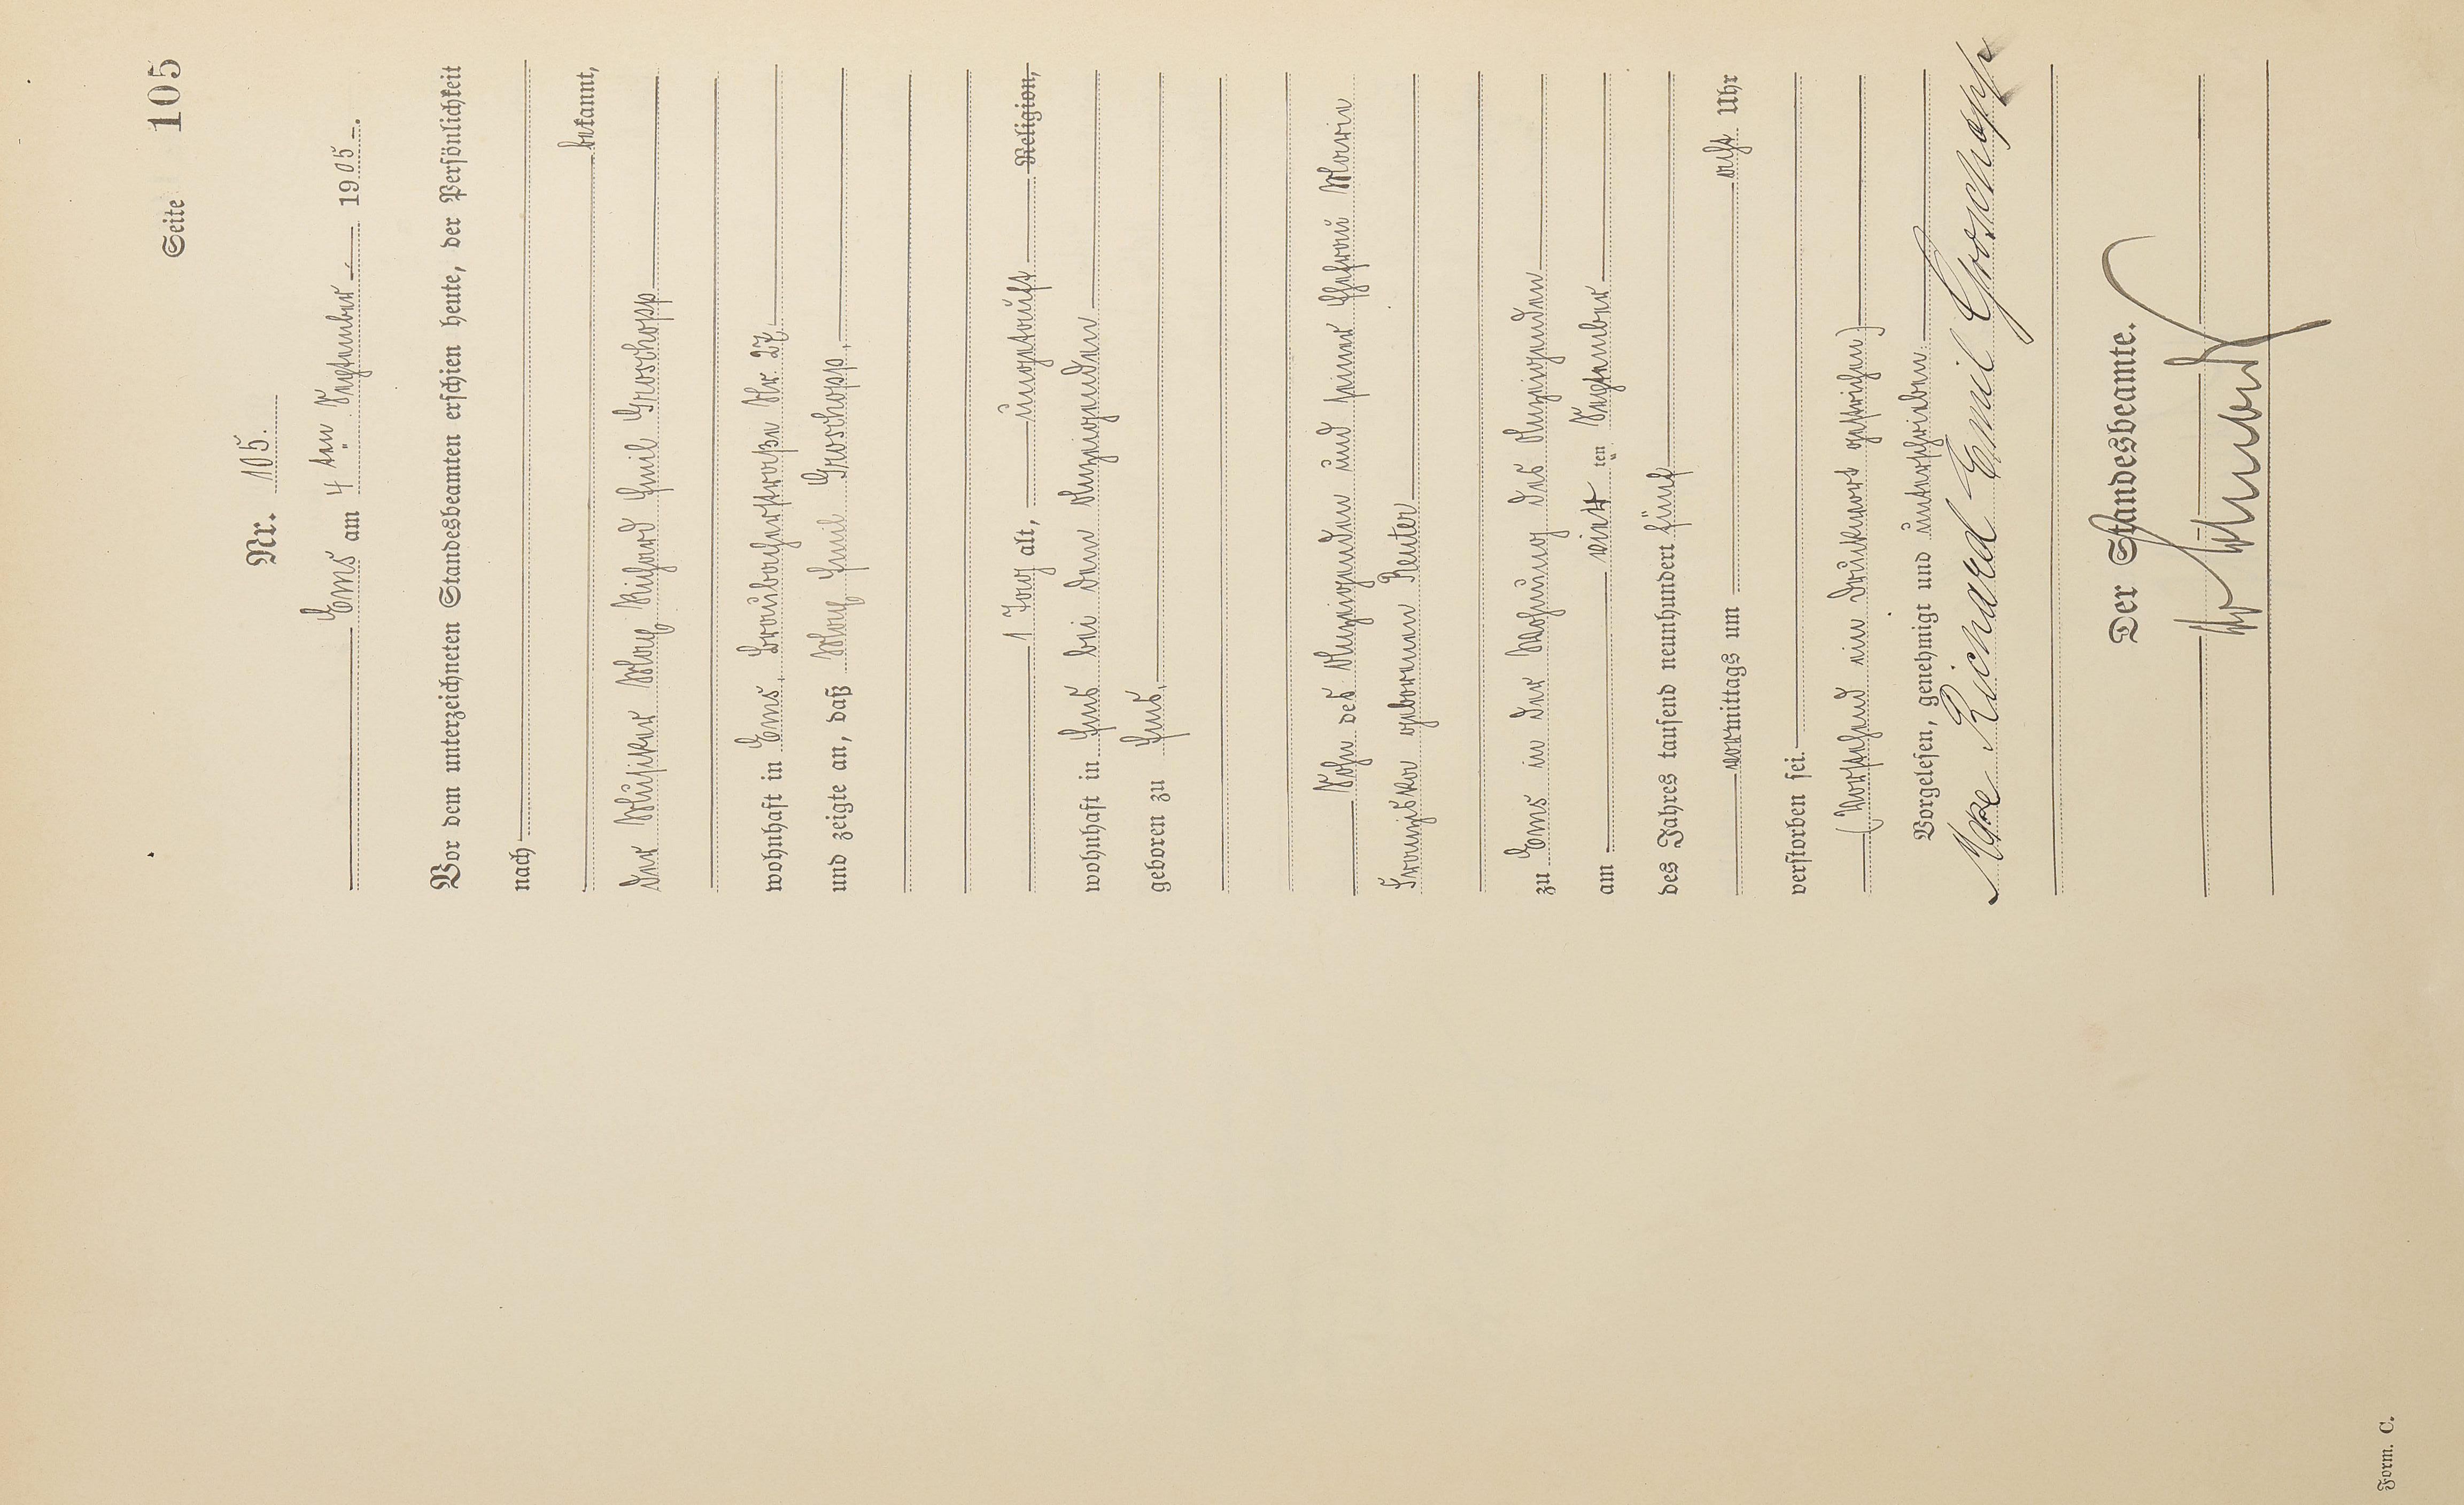 Seite 105
Nr. 105.
Ems am 4 ten September 1905.
Vor dem unterzeichneten Standesbeamten erschien heute, der Persönlichkeit
nach
bekannt,
der Musiker Max Richard Emil Groschopp
wohnhaft in Ems, Braubacherstraße Nr. 27,
und zeigte an, daß Max Emil Groschopp,
1 Tag alt, ungetauft Religion,
wohnhaft in Ems bei dem Anzeigenden
geboren zu Ems,
Sohn des Anzeigenden und seiner Ehefrau Maria
Franziska geborenen Reuter
zu Ems in der Wohnung des Anzeigenden
am vierten September
des Jahres tausend neunhundert fünf
vormittags um acht Uhr
verstorben sei.
(Vorstehend ein Druckwort gestrichen)
Vorgelesen, genehmigt und unterschrieben.
Max Richard Emil Groschopp
Der Standesbeamte.
Form. C.